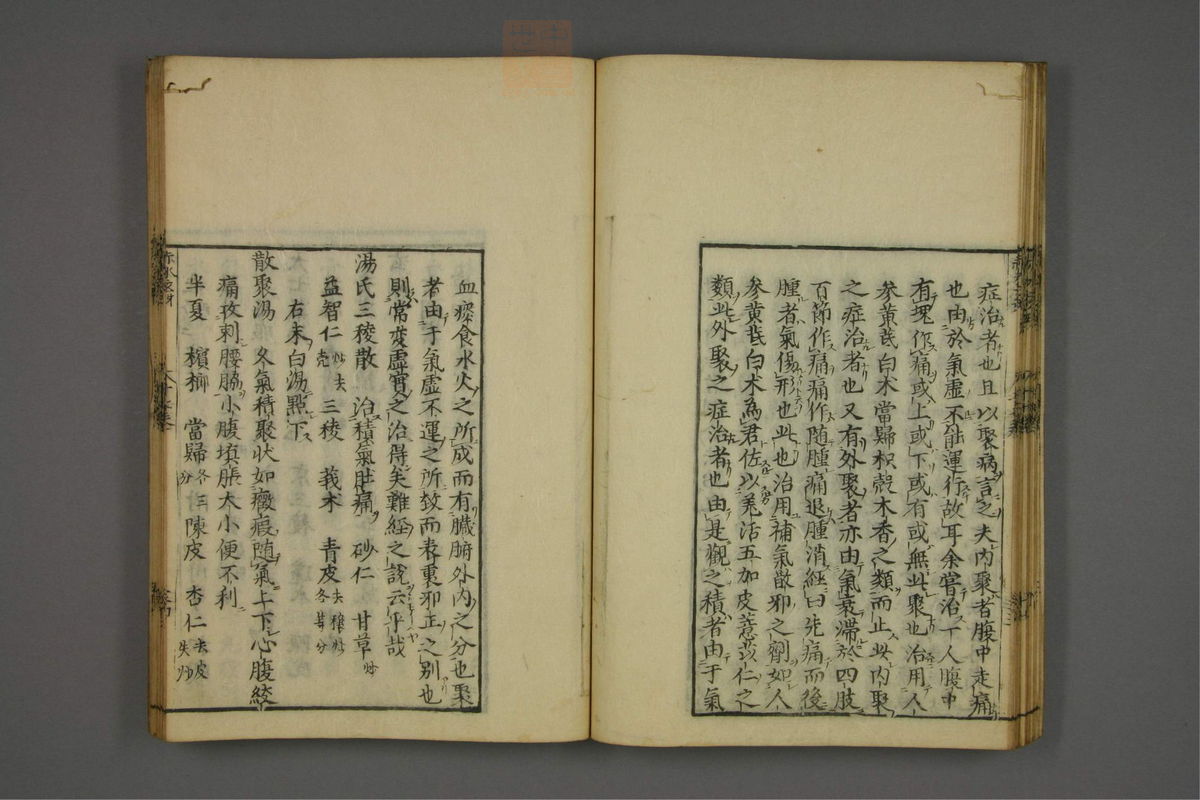 症治者也且以聚病言之夫内聚者腹中走痛
也由於氣虛不能運行故耳余嘗治一人腹中
有塊作痛或上或下或有或無此聚也治用人
參黃芪白朮當歸枳殼木香之類而止此内聚
之症治者也又有外聚者亦由氣衰滯於四肢
百節作痛痛作随腫痛退腫消經曰先痛而後
腫者氣傷形也此也治用補氣散邪之劑如人
參黃芪白朮為君佐以羌活五加皮薏苡仁之
類此外聚之症治者也由是觀之積者由于氣
血瘀食水火之所成而有臓腑外内之分也聚
者由于氣虛不運之所致而有表裏邪正之別也
則常変虛實之治得矣難經之說云乎哉
湯氏三稜散 治積氣肚痛 砂仁 甘草炒
益智仁炒去殼 三稜 莪朮 青皮去穰炒各等分
右末白湯點下
散聚湯 久氣積聚状如癥瘕随氣上下心腹絞
痛攻刺腰脇小腹填脹大小便不利
半夏 檳榔 當歸各三分 陳皮 杏仁去皮尖炒